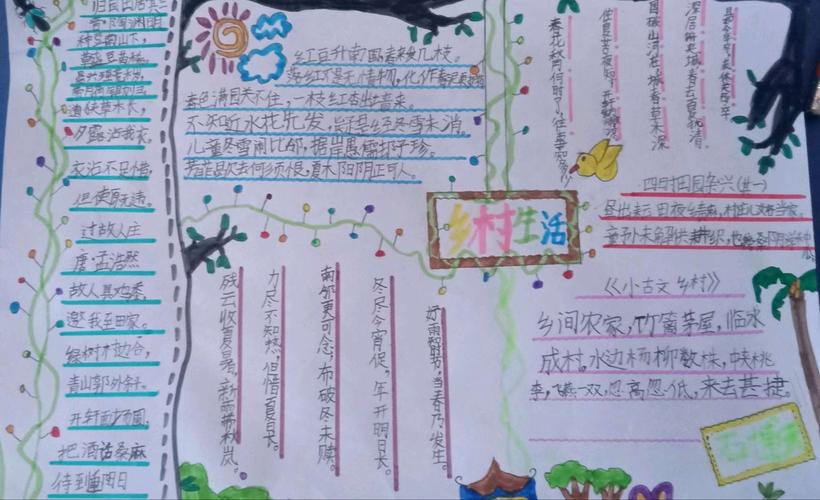 归园田居其三
晋·陶渊明
种豆南山下，
草盛豆苗稀。
晨兴理荒秽，
道狭草木长，
夕露沾我衣。
衣沾不足惜，
但使愿无违。
过故人庄
唐·孟浩然
故人具鸡黍，
邀我至田家。
绿树村边合，
青山郭外斜。
开轩面场圃，
把酒话桑麻
待到重阳日
红豆生南国，春来发几枝。
落红不是无情物，化作春泥
春色满园关不住，一枝红杏出墙来。
不知近水花先发，疑是经冬雪未消。
芳菲歇去何须恨，夏木阴阴正可人。
春花秋月何时了，往事知多少
国破山河在，城春草木深
乡村生活
四时田园杂兴(其一)
昼出耘田夜绩麻，村庄儿女各当家。
童孙未解供耕织，也
残云收夏暑，新雨带秋岚。
力尽不知热，但惜夏日长。
南邻更可念，布破冬未赎。
冬尽今宵促，年开明日长。
好雨知时节，当春乃发生。
《小古文 乡村》
乡间农家，竹篱茅屋，临水
成村。水边杨柳数株，中夹桃
李，飞燕一双，忽高忽低，来去甚捷。